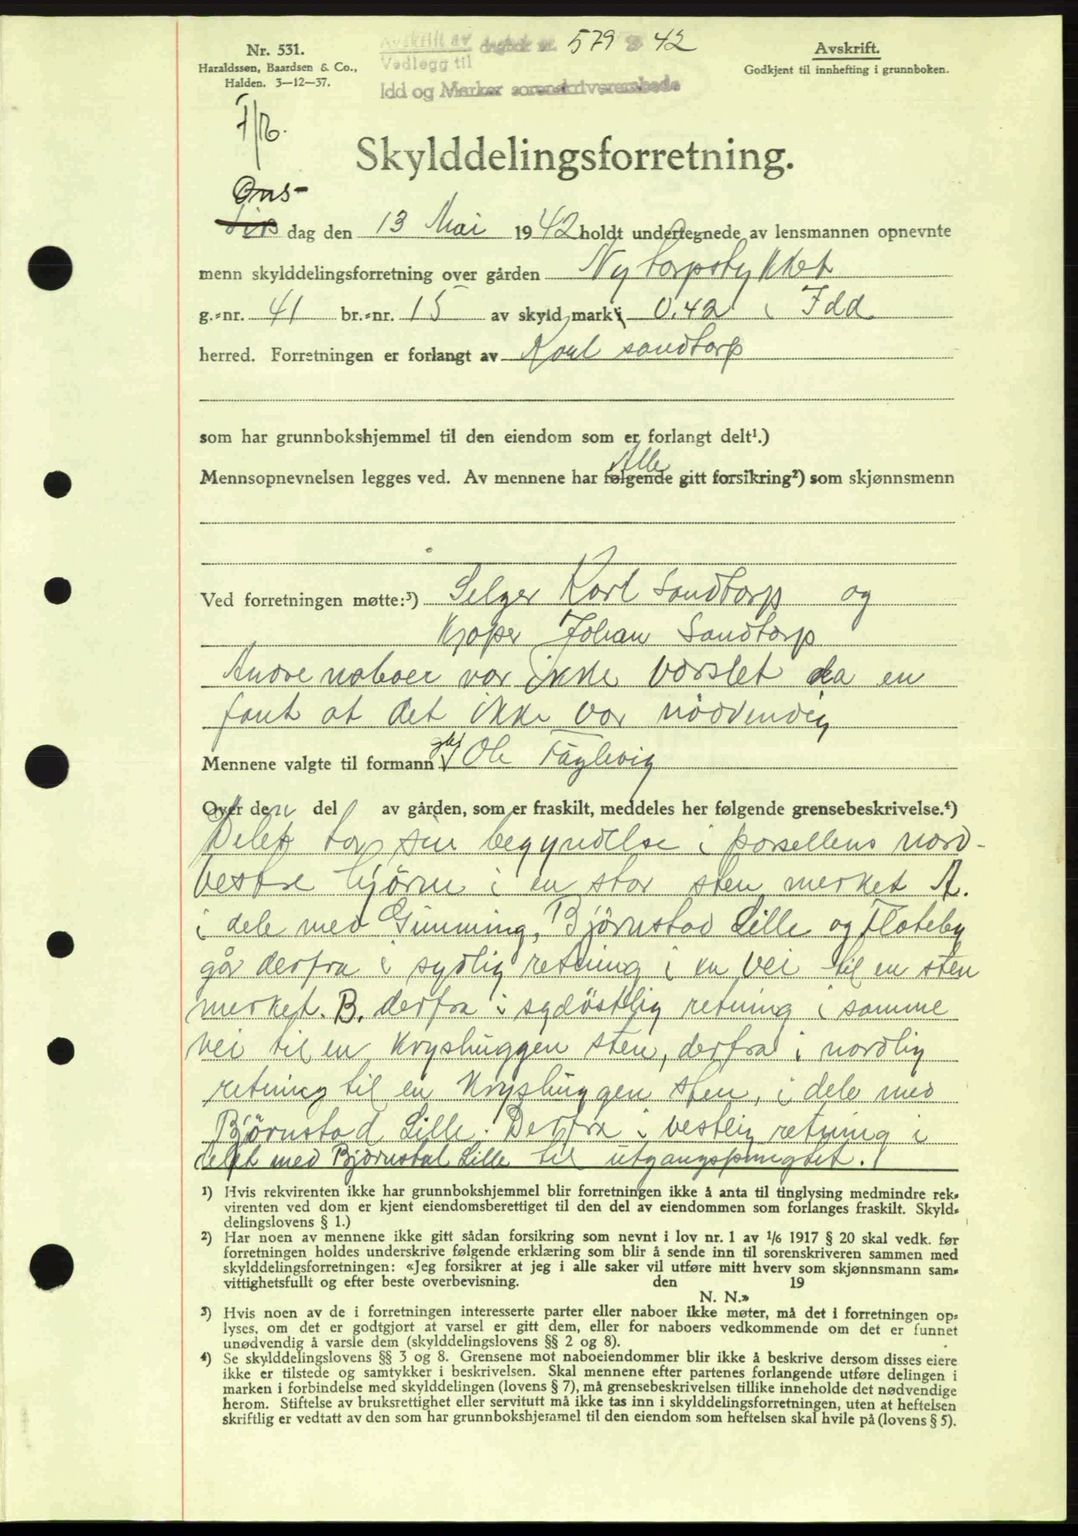 Nr. 531.
Haraldssen, Baardsen & Co.,
Halden. 3—12—37.
Avskrift av dagbok nr. 579 42
Vedlegg til
Idd og Marker sorenskriverembede
Avskrift.
Godkjent til innhefting i grunnboken.
Skylddelingsforretning.
Ons-
dag den 13 Mai 1942 holdt undertegnede av lensmannen opnevnte
menn skylddelingsforretning over gården Nytorpstykket
g.-nr. 41 br.-nr. 15 av skyld mark 0.42 i Idd
herred. Forretningen er forlangt av Karl Sandtorp
som har grunnbokshjemmel til den eiendom som er forlangt delt¹.)
Alle
Mennsopnevnelsen legges ved. Av mennene har følgende gitt forsikring²) som skjønnsmenn
Ved forretningen møtte:³) Selger Karl Sandtorp og
Kjøper Johan Sandtorp
Andre naboer var ikke varslet da en
fant at det ikke var nødvendig
Mennene valgte til formann Ole Fuglevig
Over den del av gården, som er fraskilt, meddeles her følgende grensebeskrivelse.⁴)
Delet tar sin begyndelse i parsellens nord-
vestre hjørne i en stor sten merket A.
i dele med Gimming, Bjørnstad Lille og Flateby
går derfra i sydlig retning i en vei til en sten
merket. B. derfra i sydøstlig retning i samme
vei til en kryshuggen sten, derfra i nordlig
retning til en kryshuggen sten, i dele med
Bjørnstad Lille. Derfra i vestlig retning i
delet med Bjørnstad Lille til utgangspungtet.
¹) Hvis rekvirenten ikke har grunnbokshjemmel blir forretningen ikke å anta til tinglysing medmindre rek-
virenten ved dom er kjent eiendomsberettiget til den del av eiendommen som forlanges fraskilt. Skyld-
delingslovens § 1.)
²) Har noen av mennene ikke gitt sådan forsikring som nevnt i lov nr. 1 av ¹/₆ 1917 § 20 skal vedk. før
forretningen holdes underskrive følgende erklæring som blir å sende inn til sorenskriveren sammen med
skylddelingsforretningen: «Jeg forsikrer at jeg i alle saker vil utføre mitt hverv som skjønnsmann sam-
vittighetsfullt og efter beste overbevisning. den 19
N. N.»
³) Hvis noen av de i forretningen interesserte parter eller naboer ikke møter, må det i forretningen op-
lyses, om det er godtgjort at varsel er gitt dem, eller for naboers vedkommende om det er funnet
unødvendig å varsle dem (skylddelingslovens §§ 2 og 8).
⁴) Se skylddelingslovens §§ 3 og 8. Grensene mot naboeiendommer blir ikke å beskrive dersom disses eiere
ikke er tilstede og samtykker i beskrivelsen. Skal mennene efter partenes forlangende utføre delingen i
marken i forbindelse med skylddelingen (lovens § 7), må grensebeskrivelsen tillike inneholde det nødvendige
herom. Stiftelse av bruksrettighet eller servitutt må ikke tas inn i skylddelingsforretningen, uten at heftelsen
skriftlig er vedtatt av den som har grunnbokshjemmel til den eiendom som heftelsen skal hvile på (lovens § 5).